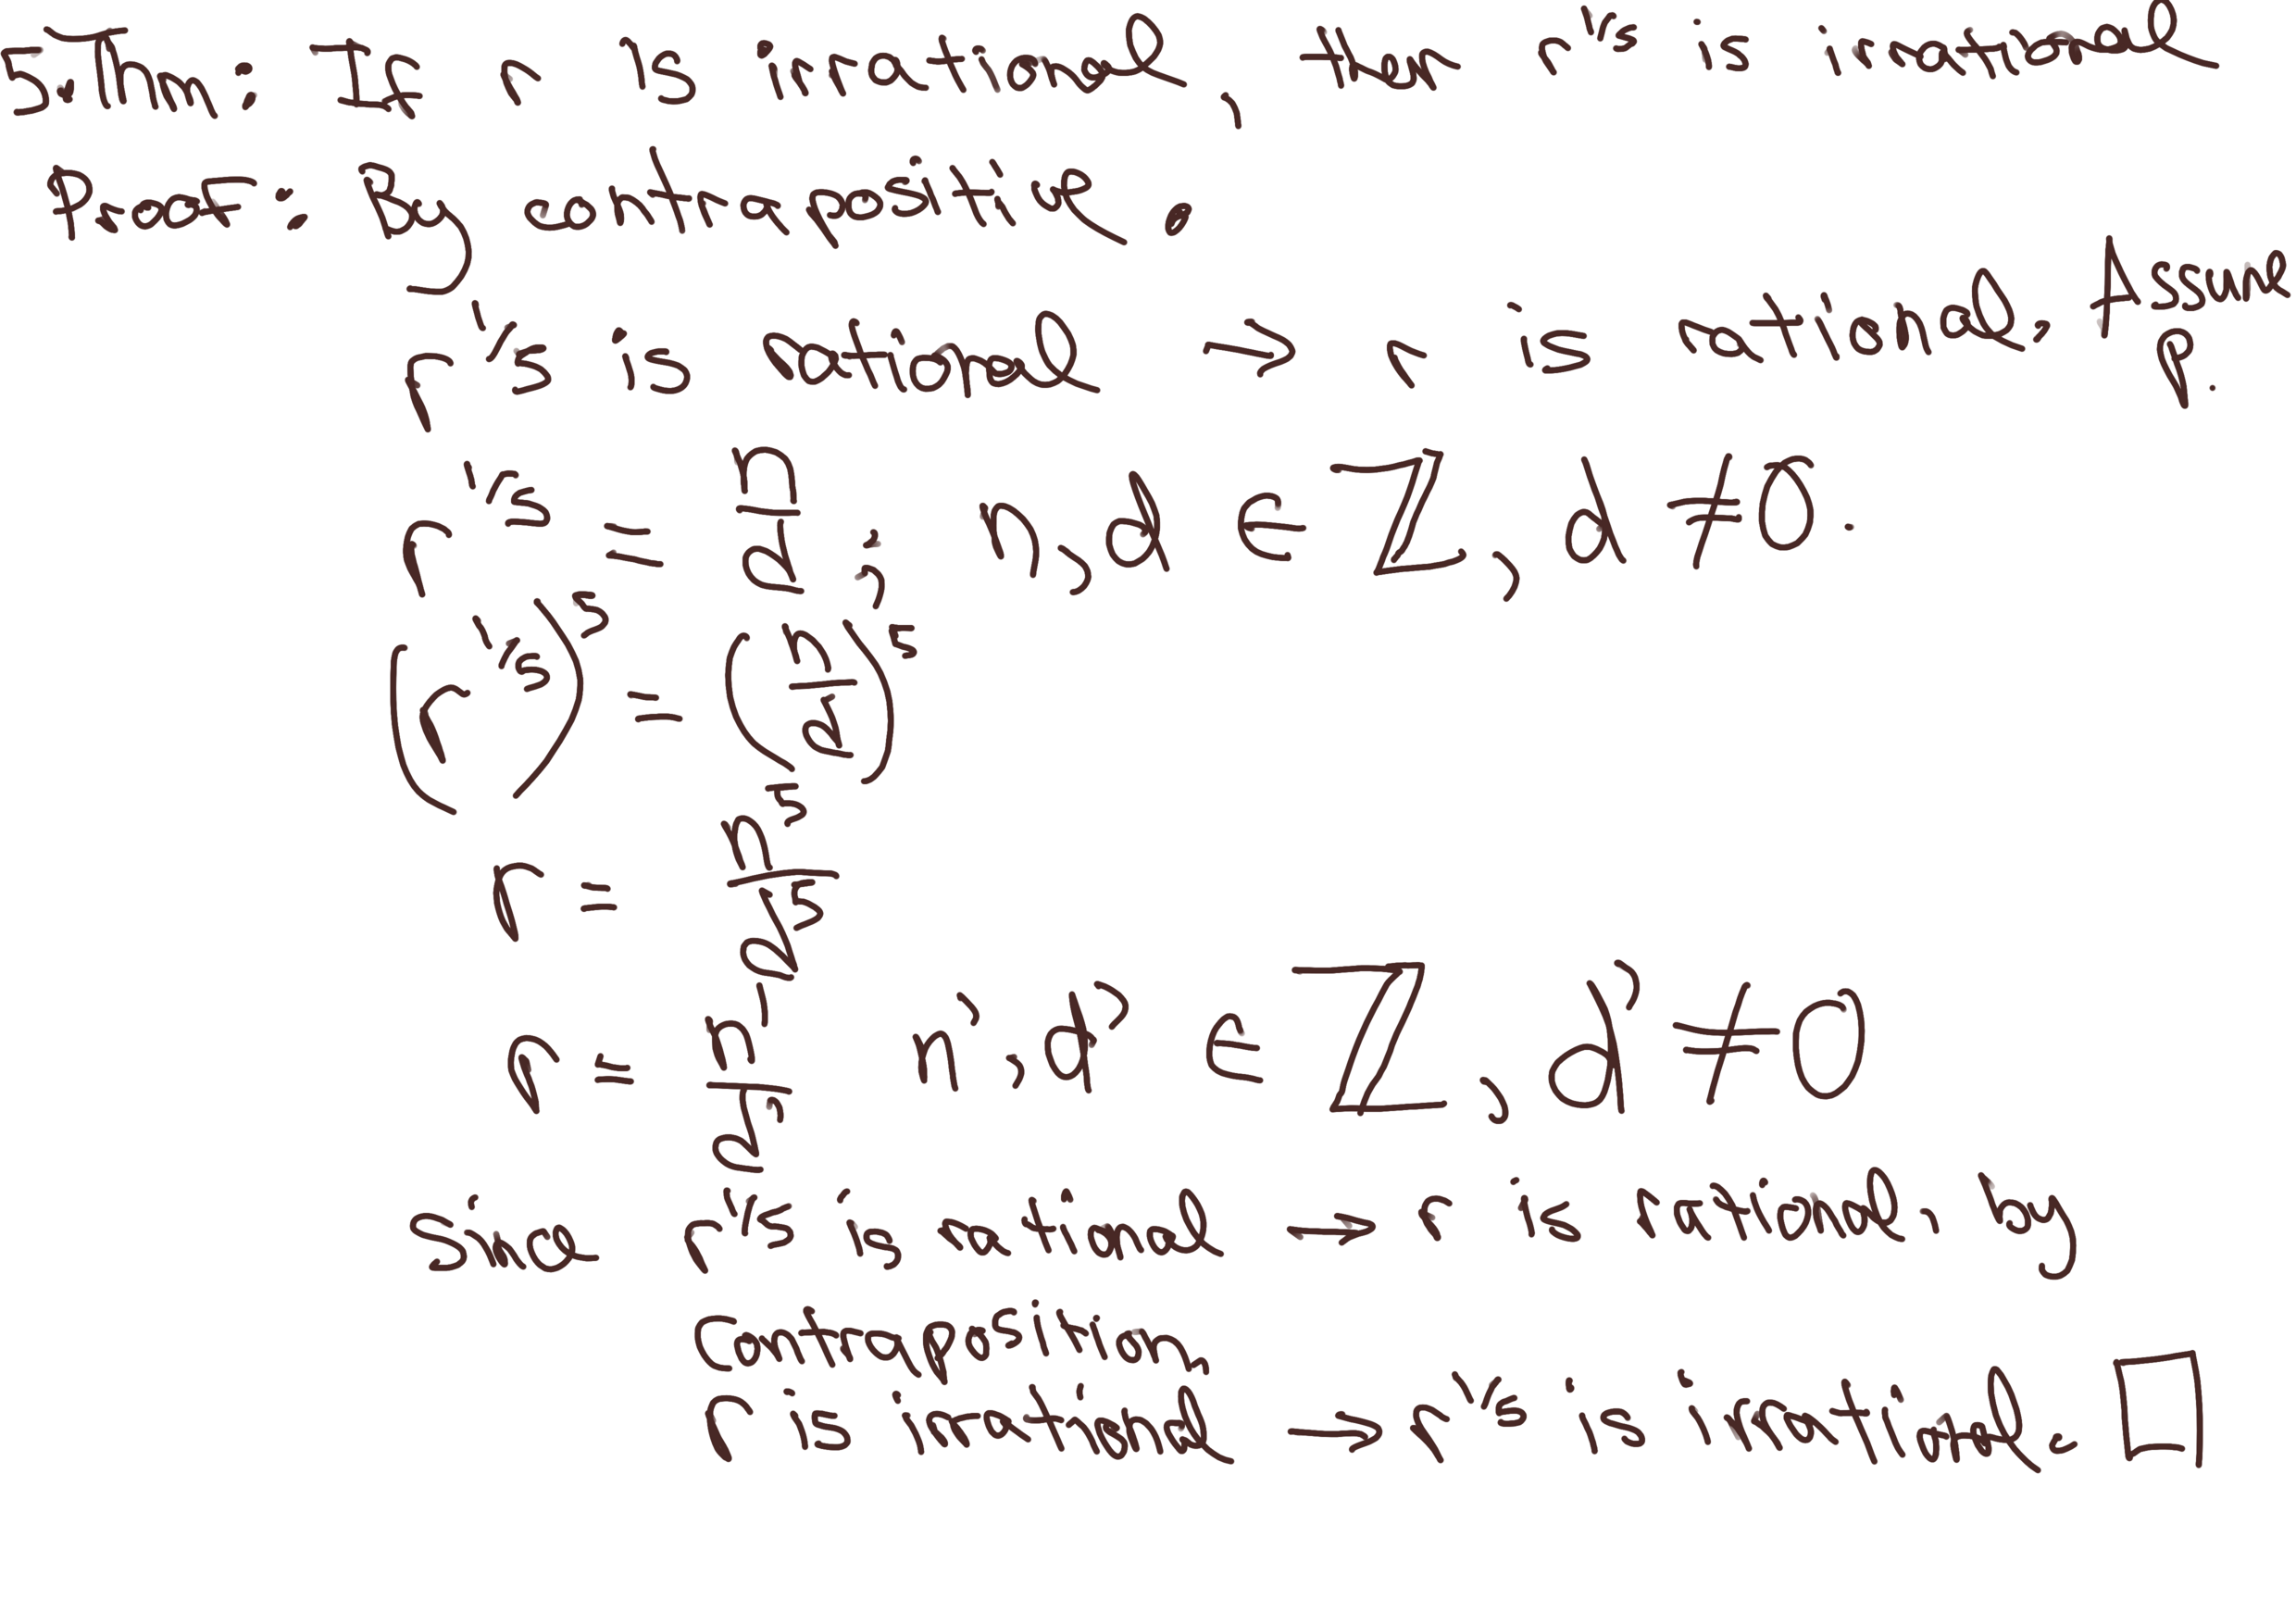 5. Thm: If r is irrational, then r^1/5 is irrational
Proof: By contrapositive.
r^1/5 is rational → r is rational. Assume p.
r^1/5 = n/d; n,d ∈ ℤ, d ≠ 0.
(r^1/5)^5 = (n/d)^5
r = n^5/d^5
r = n'/d' n', d' ∈ ℤ, d' ≠ 0
Since r^1/5 is rational → r is rational, by
contraposition,
r is irrational → r^1/5 is irrational. □